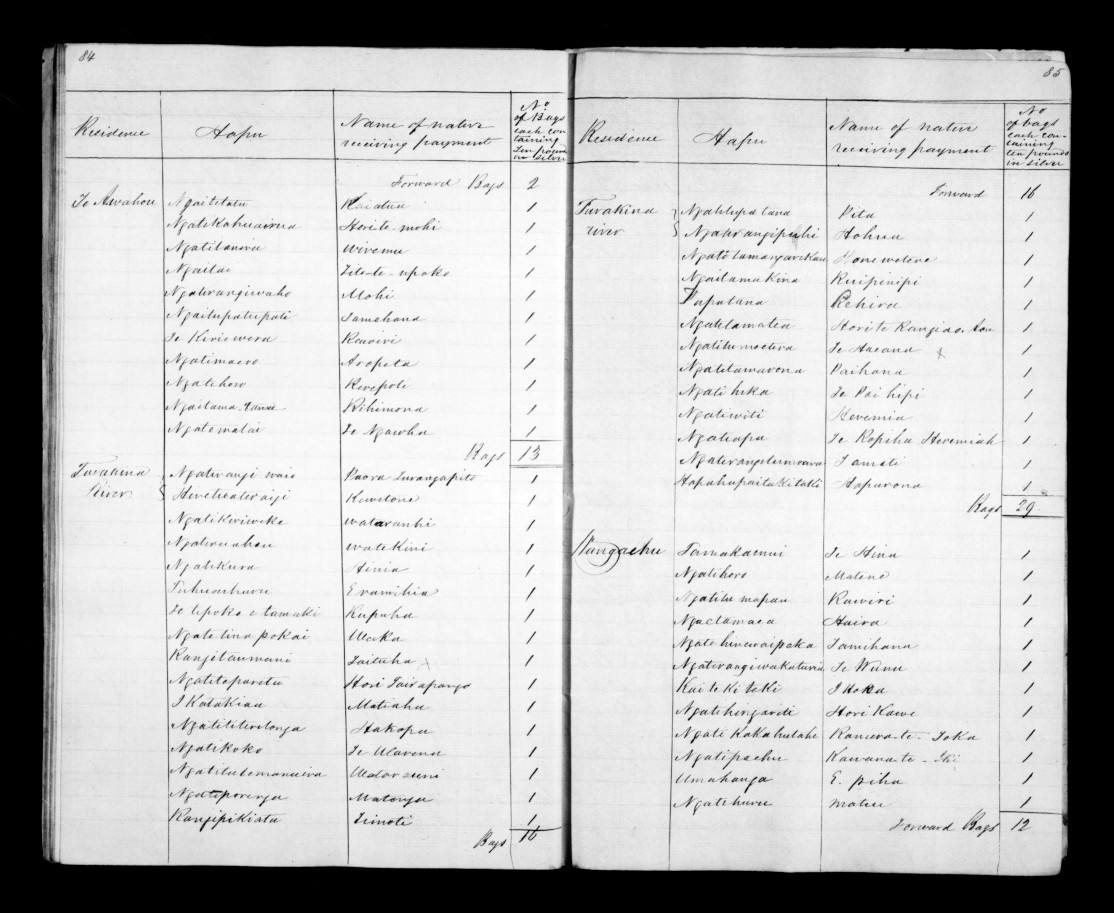 84
Residence Hapu Name of native receiving payment No of Bags each containing Ten pounds in silver
Forward Bags 2
Te Awahou Ngaitetatu Raiatua 1
Ngatikahuairua Hori te mohi 1
Ngatitanora wiremu 1
Ngaitai Tete-te-upoko 1
Ngaterangiwaho Mohi 1
Ngaitupatupati Tamehana 1
Te Kiriewera Rawiri 1
Ngatimaero Aropeta 1
Ngatihoro Kerepoti 1
Ngaitama-tawa Rihimona 1
Ngatematai Te Ngawha 1
Bags 13
Turakina Ngaterangi waio Paora Turangapito 1
River Herehereterangi Kawetone 1
Ngatikiriweke wataranhi 1
Ngateruahou watekini 1
Ngatikura Hinia 1
Eramihia 1
Te Upoko o tamaki Kupuha 1
Ngate tina pokai 1
Rangitaumani Taituha 1
Ngatiteparetu Hori Tairapango 1
I Katakiau Matiahu 1
Ngatititeritonga Hakopa 1
Ngatikoko Te Ularena 1
1
Ngateporenga Matonga 1
Rangipikiatu Timoti 1
Bags 16
85
Residence Hapu Name of native receiving payment No of bags each containing ten pounds in silver
Forward 16
Turakina Ngatitupatana Pita 1
river Ngaterangipuhi Hohua 1
Honewetere 1
Ngaitamakina Ruipinipi 1
Papatana Rehira 1
Ngatitamatea Hori te Rangiao tou 1
Te Hacana 1
Ngatitamarona Paihana 1
Ngatihika Te Pai hipi 1
Ngatiwiti Heremia 1
Ngatiapa Te Kopiha Heremiah 1
Tamati 1
Hapurona 1
Bags 29
Wangaehu Tamakainui Te Hina 1
Ngatihoro Matene 1
Ngatitu mapau Rawiri 1
Ngaetamaea Haira 1
Ngate hineraipaka Tamihana 1
Ngaterangiwakaturia Te Wunu 1
Kai te ki teki I Hoka 1
Ngatehingarete Hori Kawe 1
Ngate Kakahutahi Ranera-te-Toka 1
Ngatipaehu Kawana-te-Iki 1
Umahanga E. piha 1
Ngatehuru matiu 1
Forward Bags 12